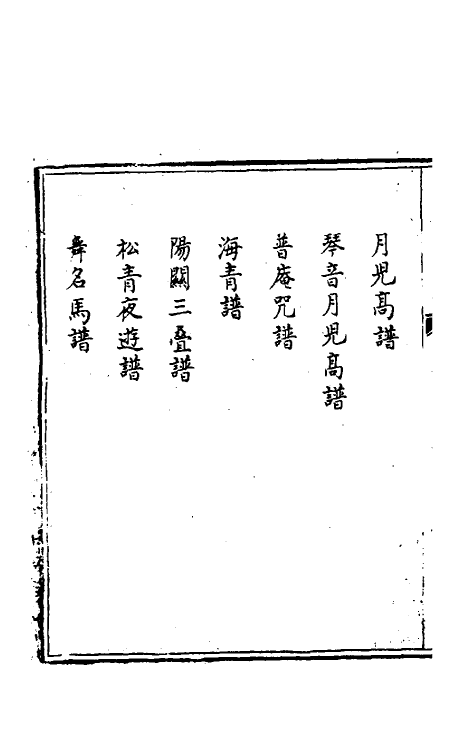 月児髙譜
琴音月児髙譜
普庵咒譜
海青譜
陽關三疊譜
松青夜遊譜
舞名馬譜